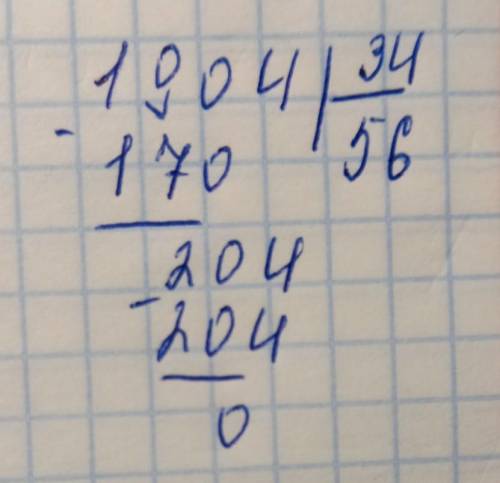 1904 | 34
- 170 56
204
- 204
0